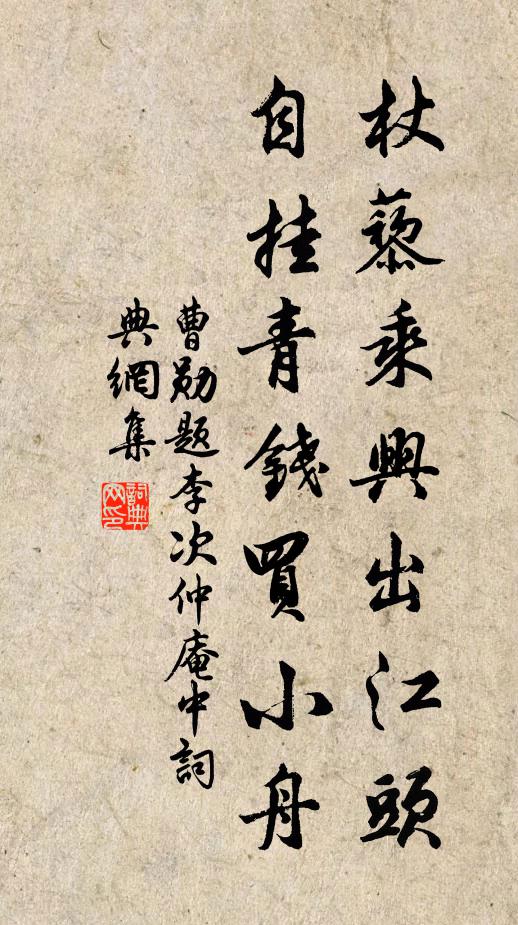 杖藜乘興出江頭
自挂青錢買小舟
曹勛題李次仲庵中詞
典網集
詞典
網印